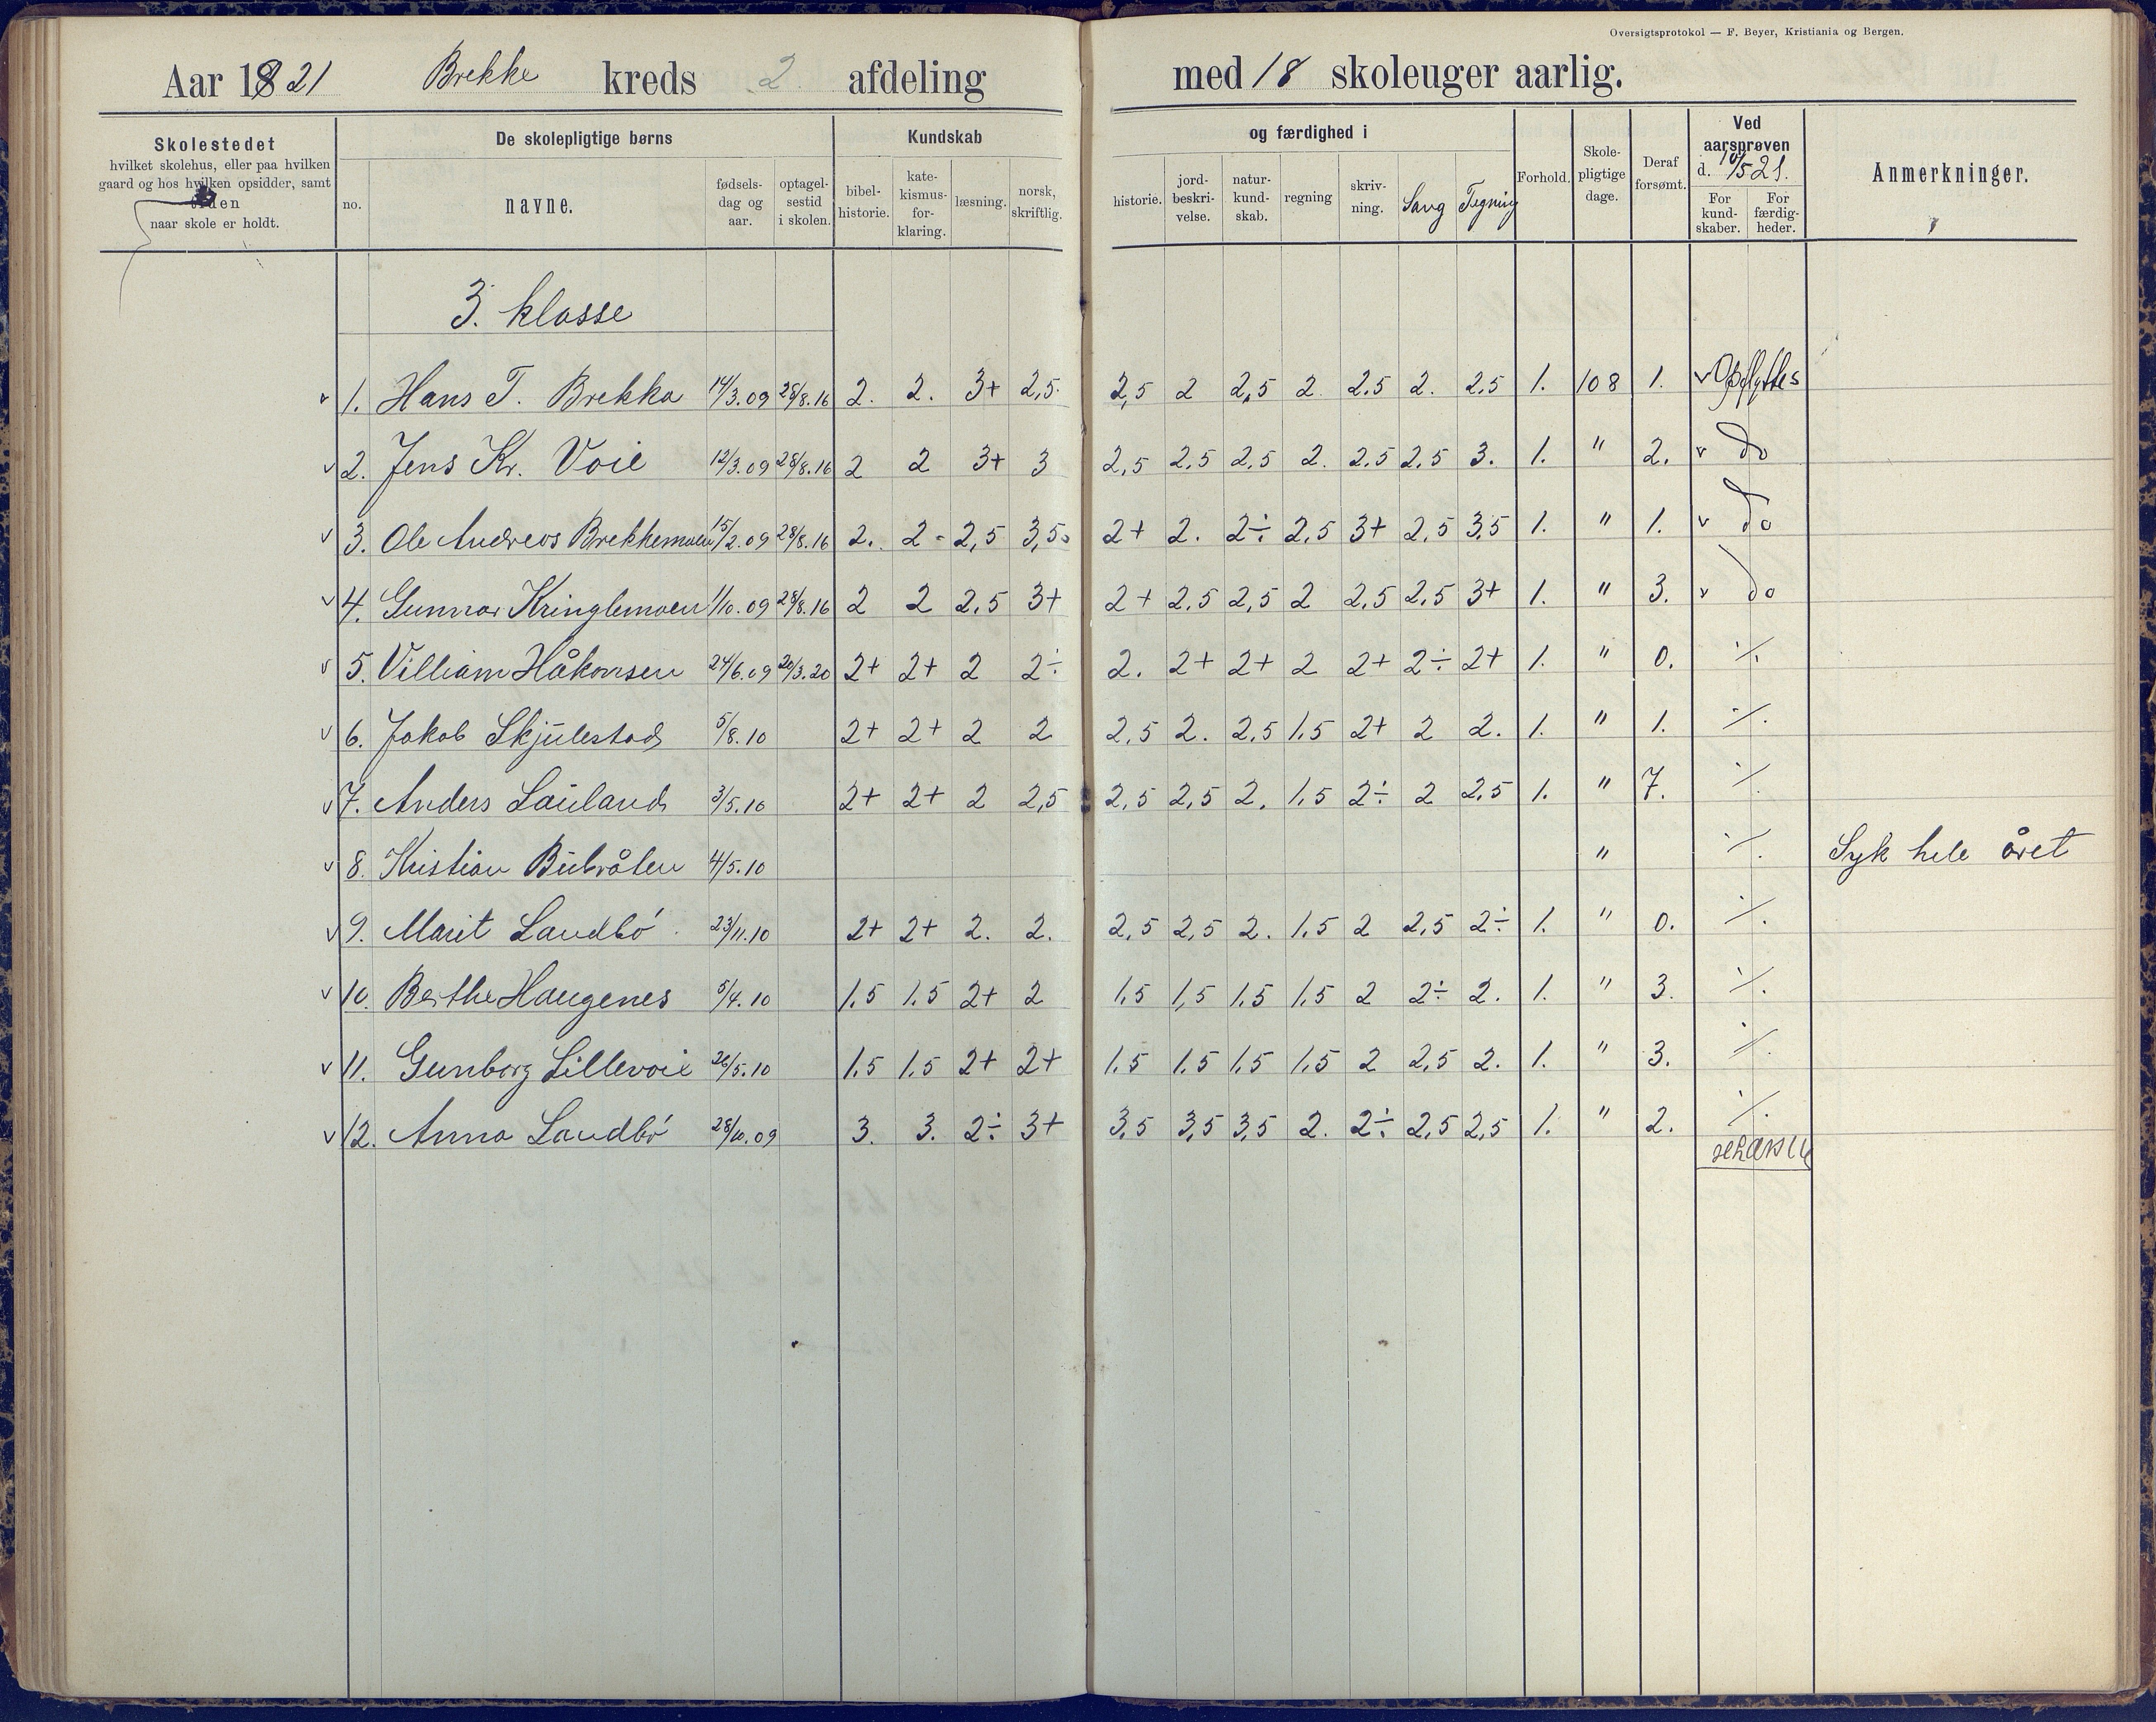 Oversigtsprotokol — F. Beyer, Kristiania og Bergen.
Aar 1921 Brekke kreds 2. afdeling med 18 skoleuger aarlig.
Skolestedet
hvilket skolehus, eller paa hvilken
gaard og hos hvilken opsidder, samt
tiden
naar skole er holdt.
De skolepligtige børns
no. navne. fødsels-dag og aar. optagel-sestid i skolen.
Kundskab og færdighed i
bibel-historie. kate-kismus-for-klaring. læsning. norsk, skriftlig. historie. jord-beskri-velse. natur-kund-skab. regning skriv-ning. Sang Tegning
Forhold. Skole-pligtige dage. Deraf forsømt.
Ved aarsprøven d. 10/5 21.
For kund-skaber. For færdig-heder.
Anmerkninger.
3. klasse
v 1. Hans T. Brekka 14/3.09 28/8.16 2. 2. 3+ 2,5 2,5 2 2,5 2 2,5 2. 2,5 1. 108 1. v Opflyttes
v 2. Jens Kr. Voie 12/3.09 28/8.16 2 2 3+ 3 2,5 2,5 2,5 2. 2,5 2,5 3. 1. " 2. v do
v 3. Ole Andreas Brekkemoen 15/2.09 28/8.16 2. 2 - 2,5 3,5 2+ 2. 2÷ 2,5 3+ 2,5 3,5 1. " 1. v do
v 4. Gunnar Kringlemoen 1/10.09 28/8.16 2 2 2,5 3+ 2+ 2,5 2,5 2 2,5 2,5 3+ 1. " 3. v do
v 5. Villiam Håkonsen 24/6.09 20/3.20 2+ 2+ 2 2÷ 2. 2+ 2+ 2 2+ 2÷ 2+ 1. " 0. ·/.
v 6. Jakob Skjulestad 5/8.10 2+ 2+ 2 2 2,5 2. 2,5 1,5 2+ 2 2. 1. " 1. ·/.
v 7. Anders Lauland 3/5.10 2+ 2+ 2 2,5 2,5 2,5 2. 1,5 2÷ 2 2,5 1. " 7. ·/.
v 8. Kristian Bubråten 4/5.10 " ·/. Syk hele året
v 9. Marit Landbó 23/11.10 2+ 2+ 2. 2. 2,5 2,5 2. 1,5 2 2,5 2÷ 1. " 0. ·/.
v 10. Berthe Haugenes 5/4.10 1,5 1,5 2+ 2 1,5 1,5 1,5 1,5 2 2÷ 2. 1. " 3. ·/.
v 11. Gunborg Lillevoie 26/5.10 1,5 1,5 2+ 2+ 1,5 1,5 1,5 1,5 2 2,5 2. 1. " 3. ·/.
v 12. Anna Landbó 28/10.09 3. 3. 2÷ 3+ 3,5 3,5 3,5 2. 2÷ 2,5 2,5 1. " 2. ·/.